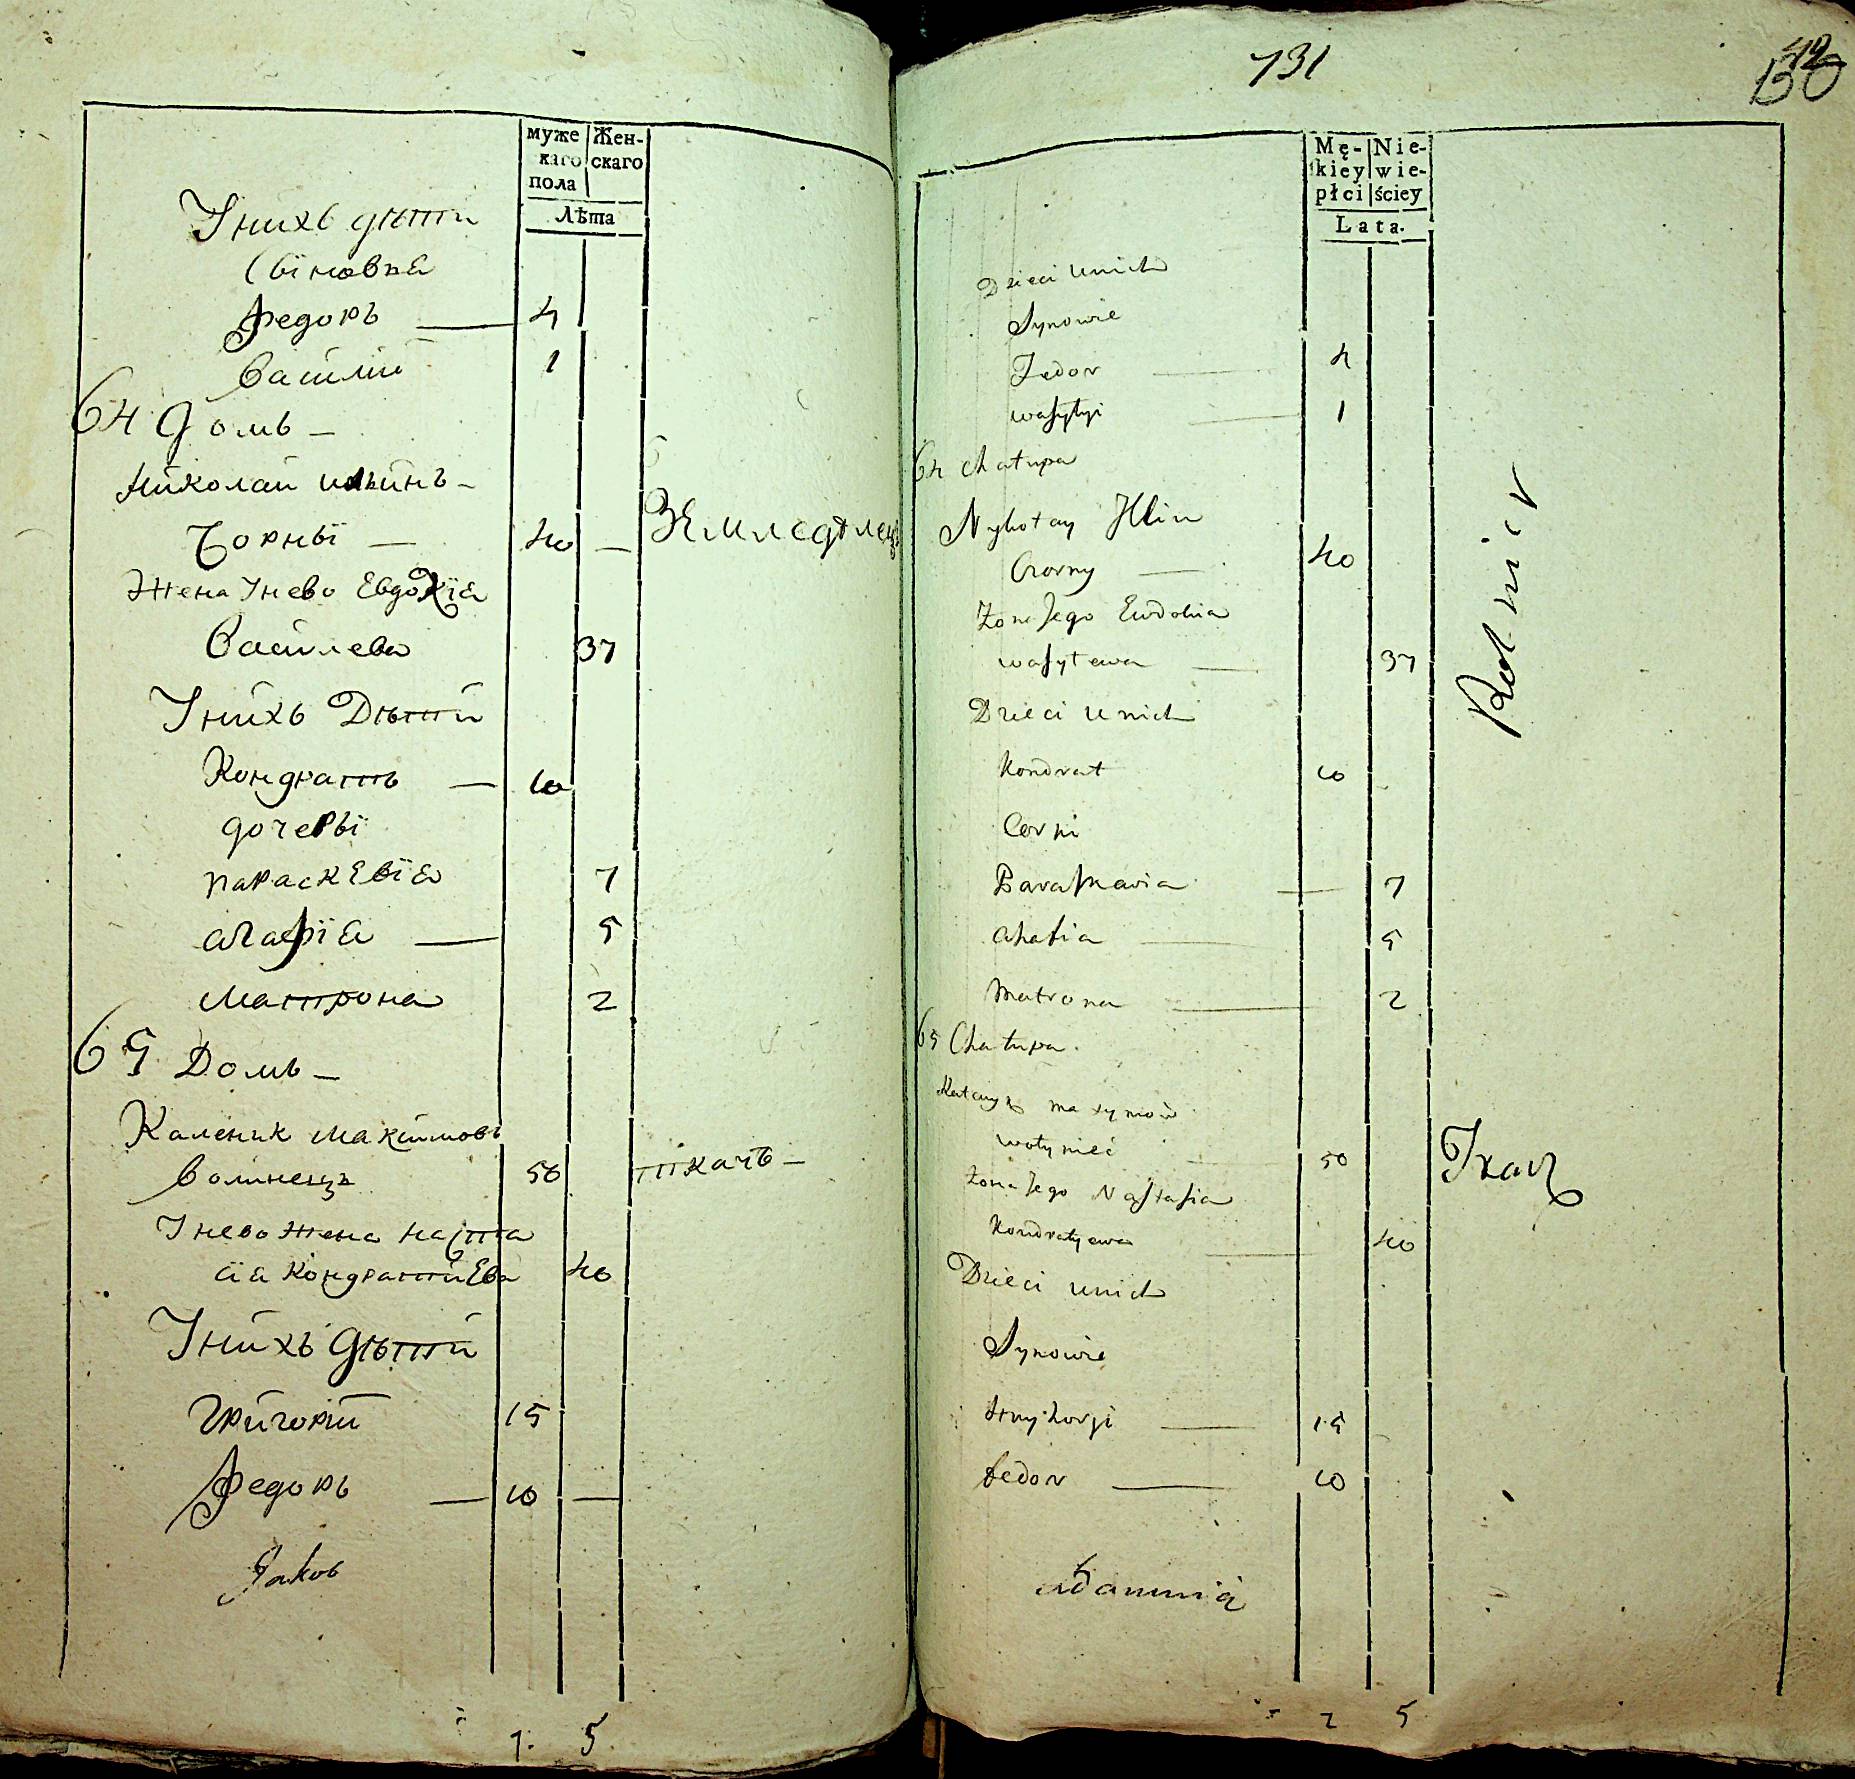 муже
каго
пола
Жен-
скаго
Лѣта
Унихъ дѣти
Сыновья
Федоръ — 4
Василий 1
64 Домъ —
Николай Ильинъ —
Чорный — 40 — Земледѣлецъ
Жена Унево Евдокїя
Василева 37
Унихъ Дѣти
Кондратъ — 10
дочеры
параскевїя 7
агафїя — 5
Матрона 2
65 Домъ —
Каленик Максимовъ
волинецъ 50 ткачъ —
Унево жена наста
сїя Кондратиева 40
Унихъ Дѣти
Григорий 15
Федоръ — 10 —
7. 5
731
Mę-
kiey
płci
Nie-
wie-
ściey
Lata.
Dzieci unich
Synowie
Fedor 4
wasylyi 1
64 chatupa
Nykołay Illin
Czorny — 40 Rolnicz
Żona Jego Eudokia
wasylewa — 37
Dzieci unich
Kondrat 10
Corki
Paraskavia — 7
ahafia — 5
Matrona — 2
65 Chatupa.
maxymow
wołyniec 50 Tkacz
Żona Jego Nastasia
Kondratyewa — 40
Dzieci unich
Synowie
Hryhoryi — 15
fedor — 10
7 5